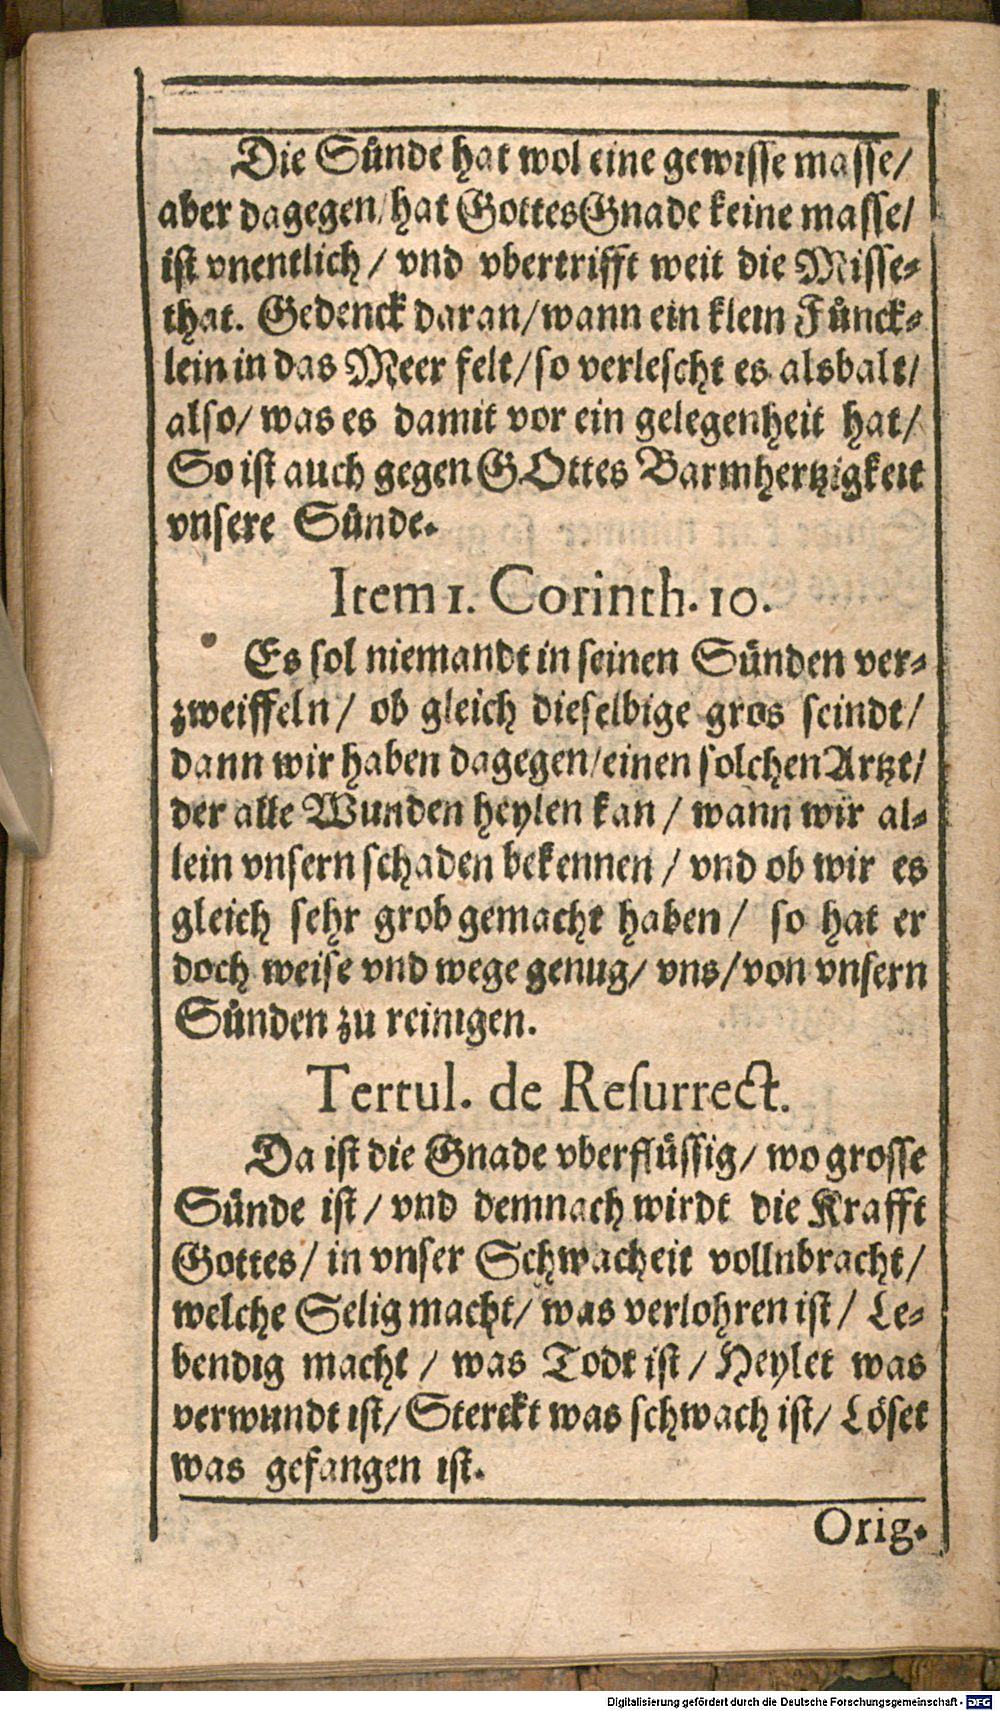 Die Sünde hat wol eine gewisse masse/
aber dagegen/hat GottesGnade keine masse/
ist vnentlich/ vnd vbertrifft weit die Misse-
that. Gedenck daran/wann ein klein Fünck-
lein in das Meer felt/so verlescht es alsbalt/
also/ was es damit vor ein gelegenheit hat/
So ist auch gegen GOttes Barmhertzigkeit
vnsere Sünde.
Item 1. Corinth. 10.
Es sol niemandt in seinen Sünden ver-
zweiffeln/ ob gleich dieselbige gros seindt/
dann wir haben dagegen/einen solchen Artzt/
der alle Wunden heylen kan/ wann wir al-
lein vnsern schaden bekennen/ vnd ob wir es
gleich sehr grob gemacht haben/ so hat er
doch weise vnd wege genug/ vns/von vnsern
Sünden zu reinigen.
Tertul. de Resurrect.
Da ist die Gnade vberflüssig/ wo grosse
Sünde ist/ vnd demnach wirdt die Krafft
Gottes/ in vnser Schwacheit vollnbracht/
welche Selig macht/ was verlohren ist/ Le-
bendig macht/ was Todt ist/ Heylet was
verwundt ist/ Sterckt was schwach ist/ Löset
was gefangen ist.
Orig.
Digitalisierung gefördert durch die Deutsche Forschungsgemeinschaft - DFG